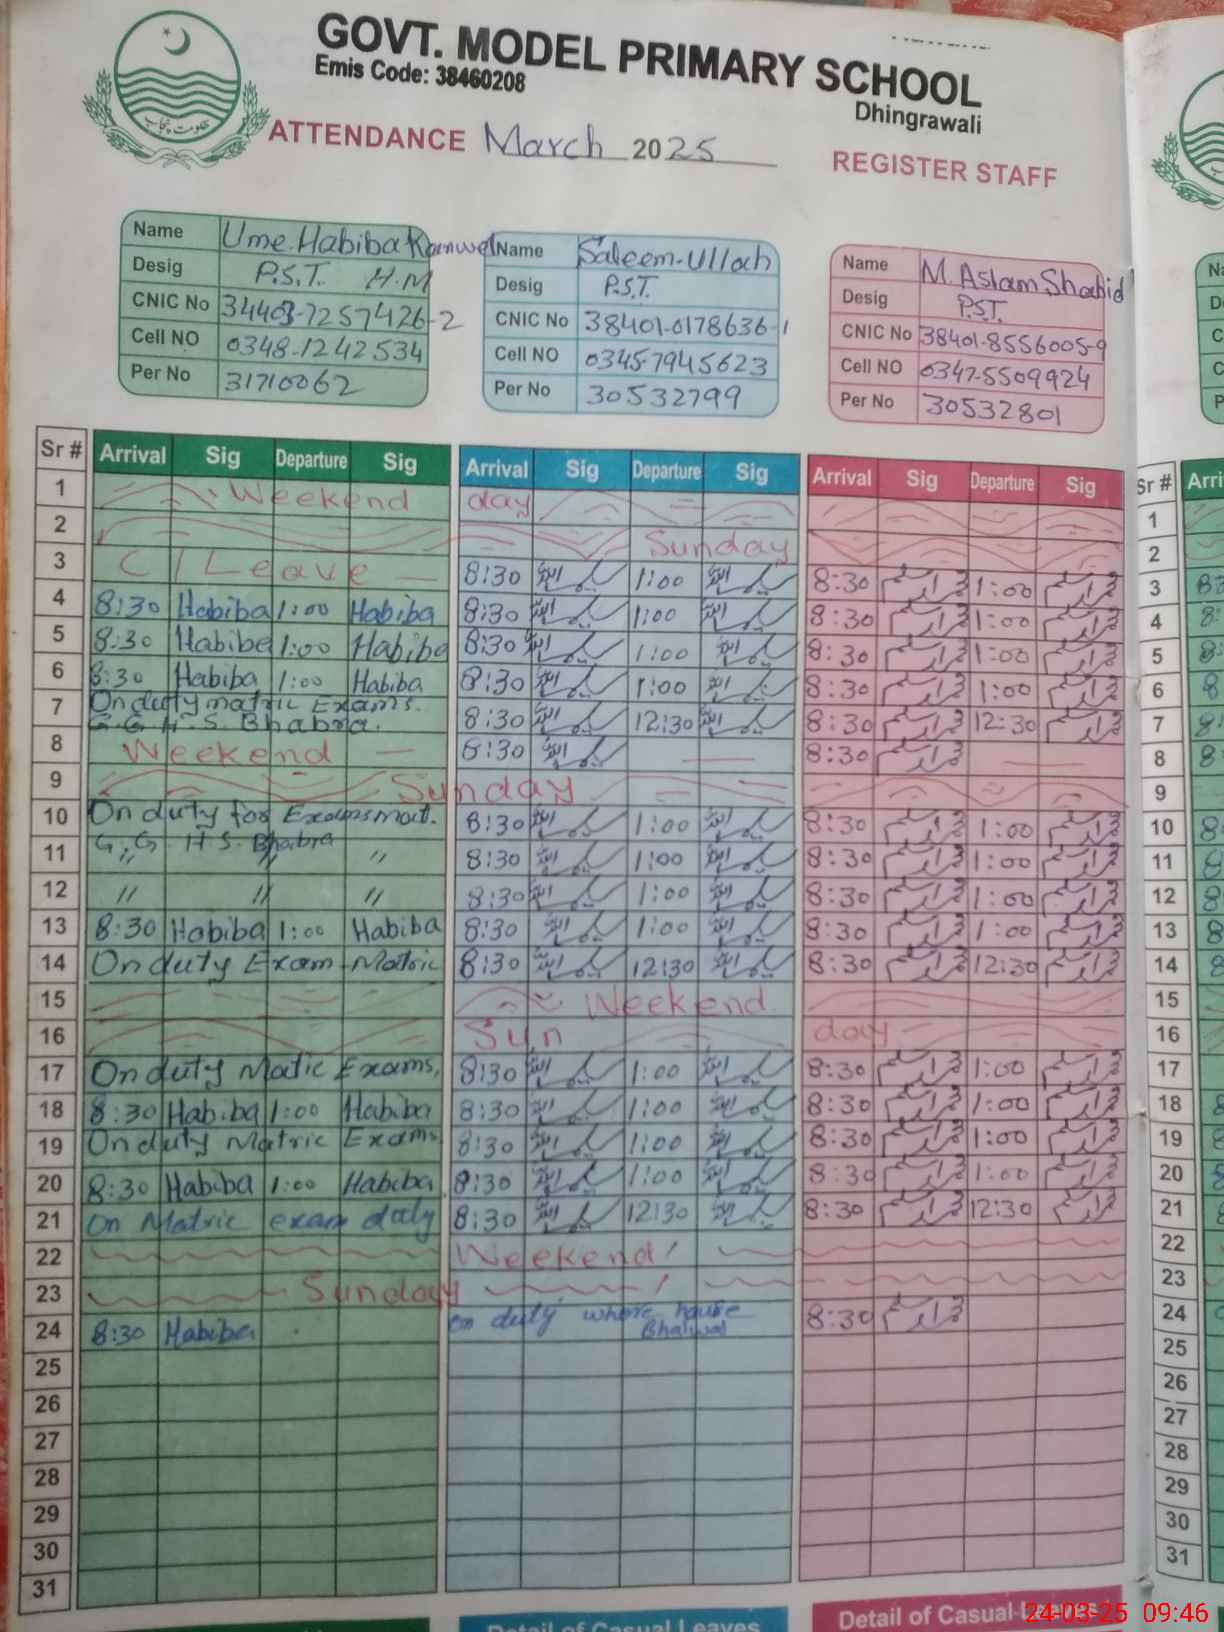 GOVT. MODEL PRIMARY SCHOOL
Emis Code: 38460208
Dhingrawali
حکومت پنجاب
ATTENDANCE March 2025
REGISTER STAFF
Name Ume Habiba Kanwel
Desig P.S.T. H.M
CNIC No 34403-7257426-2
Cell NO 0348-1242534
Per No 31710062
Name Saleem-Ullah
Desig P.S.T.
CNIC No 38401-0178636-1
Cell NO 03457945623
Per No 30532799
Name M. Aslam Shahid
Desig P.S.T.
CNIC No 38401-8556005-9
Cell NO 0347-5509924
Per No 30532801
Sr # Arrival Sig Departure Sig Arrival Sig Departure Sig Arrival Sig Departure Sig Sr # Arri
1 Weekend day 1
2 Sunday 2
3 C/Leave 8:30 1:00 8:30 1:00 3
4 8:30 Habiba 1:00 Habiba 8:30 1:00 8:30 1:00 4
5 8:30 Habiba 1:00 Habiba 8:30 1:00 8:30 1:00 5
6 8:30 Habiba 1:00 Habiba 8:30 1:00 8:30 1:00 6
7 On duty matric Exams. G.G.H.S. Bhabra. 8:30 12:30 8:30 12:30 7
8 Weekend 8:30 8:30 8
9 Sunday 9
10 On duty for Exams mat. 8:30 1:00 8:30 1:00 10
G.G. H.S. Bhabra
11 〃 〃 〃 8:30 1:00 8:30 1:00 11
12 〃 〃 〃 8:30 1:00 8:30 1:00 12
13 8:30 Habiba 1:00 Habiba 8:30 1:00 8:30 1:00 13
14 On duty Exam Matric 8:30 12:30 8:30 12:30 14
15 Weekend 15
16 Sun day 16
17 On duty Matic Exams, 8:30 1:00 8:30 1:00 17
18 8:30 Habiba 1:00 Habiba 8:30 1:00 8:30 1:00 18
19 On duty Matric Exams 8:30 1:00 8:30 1:00 19
20 8:30 Habiba 1:00 Habiba 8:30 1:00 8:30 1:00 20
21 On Matric exam duty 8:30 12:30 8:30 12:30 21
22 Weekend 22
23 Sunday 23
24 8:30 Habiba on duty where house Bhalwal 8:30 24
25 25
26 26
27 27
28 28
29 29
30 30
31 31
Detail of Casual Leaves Detail of Casual Leaves
24-03-25 09:46